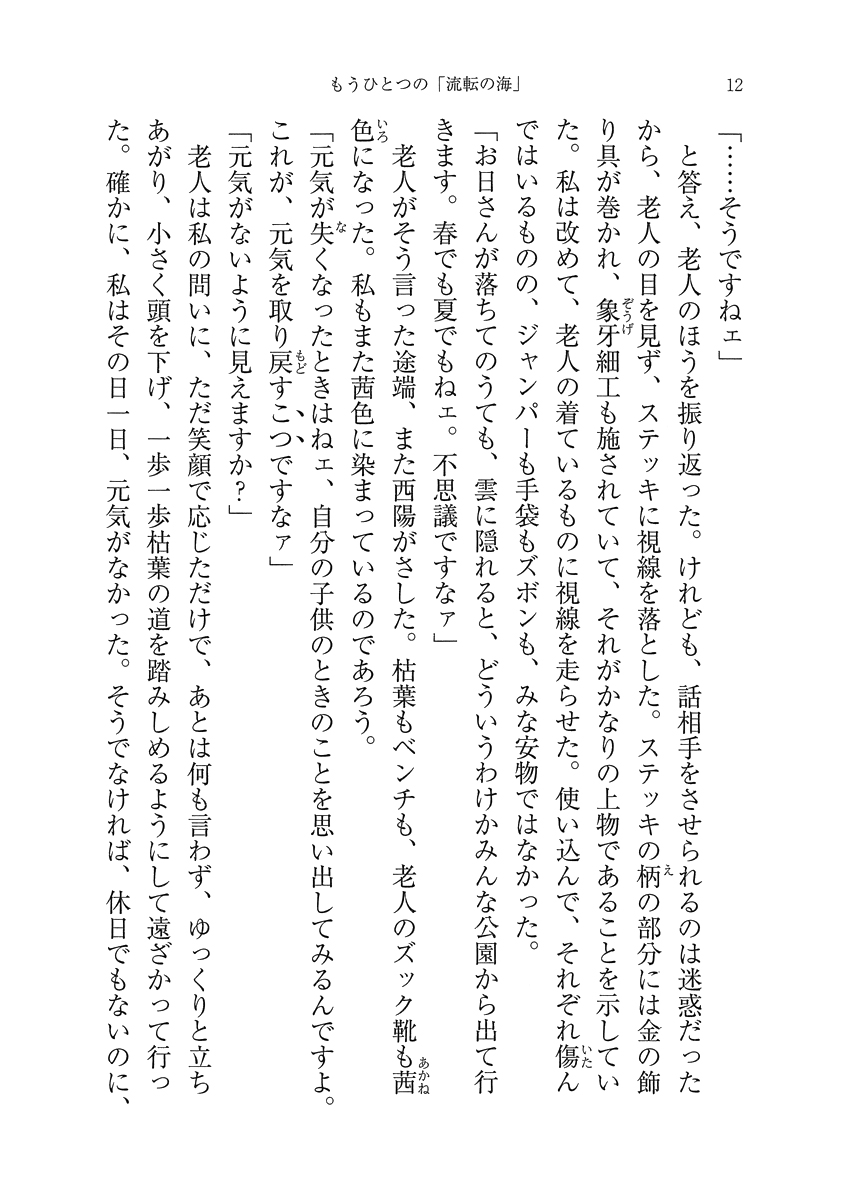 もうひとつの「流転の海」
12
「……そうですねェ」
と答え、老人のほうを振り返った。けれども、話相手をさせられるのは迷惑だった
から、老人の目を見ず、ステッキに視線を落とした。ステッキの柄の部分には金の飾
り具が巻かれ、象牙細工も施されていて、それがかなりの上物であることを示してい
た。私は改めて、老人の着ているものに視線を走らせた。使い込んで、それぞれ傷ん
ではいるものの、ジャンパーも手袋もズボンも、みな安物ではなかった。
「お日さんが落ちてのうても、雲に隠れると、どういうわけかみんな公園から出て行
きます。春でも夏でもねェ。不思議ですなァ」
老人がそう言った途端、また西陽がさした。枯葉もベンチも、老人のズック靴も茜
色になった。私もまた茜色に染まっているのであろう。
「元気が失くなったときはねェ、自分の子供のときのことを思い出してみるんですよ。
これが、元気を取り戻すこつですなァ」
「元気がないように見えますか？」
老人は私の問いに、ただ笑顔で応じただけで、あとは何も言わず、ゆっくりと立ち
あがり、小さく頭を下げ、一歩一歩枯葉の道を踏みしめるようにして遠ざかって行っ
た。確かに、私はその日一日、元気がなかった。そうでなければ、休日でもないのに、